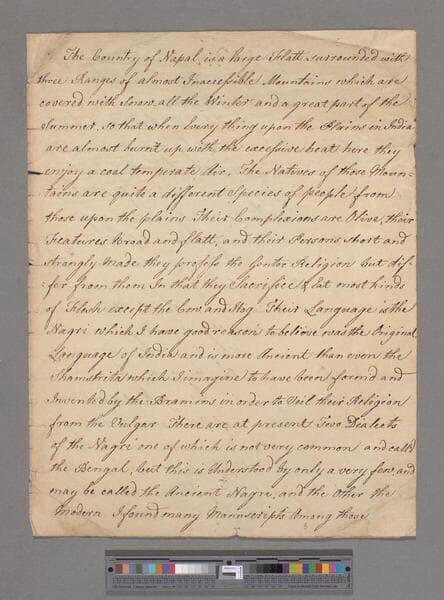 The Country of Napal, is a large Flatt surrounded with
three Ranges of almost Inaccessible Mountains which are
covered with Snow all the Winter and a great part of the
Summer, so that when Every thing upon the Plains in India
are almost burnt up with the excessive heats here they
enjoy a cool temperate Air, The Natives of those Moun-
tains are quite a different Species of people from
those upon the plains Their Complexions are Olive, their
Features broad and flatt, and their Persons short and
strongly made they profess the Gentoo Religion but dif-
:fer from them In that they Sacrifice & Eat most kinds
of Flesh except the Cow and Hog Their Language is the
Nagri which I have good reason to believe was the Original
Language of India and is more Ancient than even the
Shamskrita which I imagine to have been formd and
Invented by the Bramins in order to Veil their Religion
from the Vulgar There are at present Two Dialects
of the Nagri one of which is not very common and calld
the Bengal, but this is Understood by only a very few, and
may be called the Ancient Nagre, and the Other the
Modern I found many Manuscripts Among those